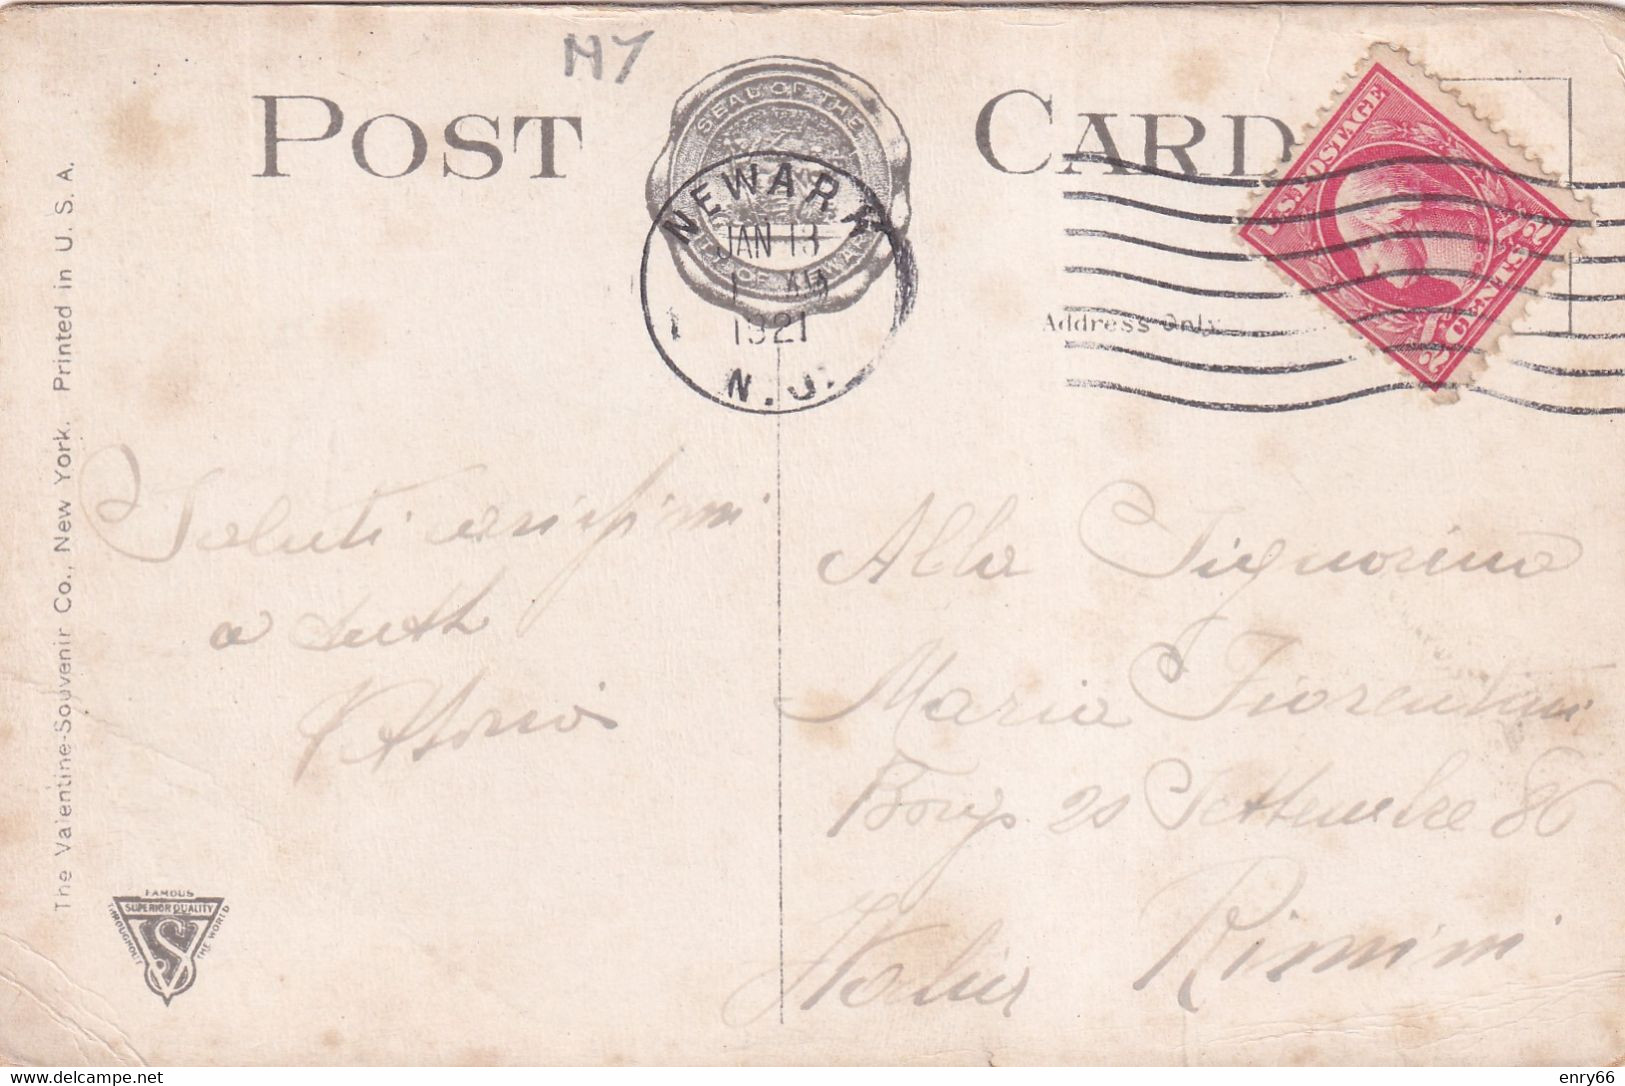 POST CARD
MY
SEAL OF THE
CITY OF NEWARK
NEWARK
JAN 13
1921
N.J.
U.S. POSTAGE
2 CENTS 2
Address Only
The Valentine-Souvenir Co., New York. Printed in U. S. A.
FAMOUS
SUPERIOR QUALITY
THROUGHOUT THE WORLD
VS
Saluti carissimi
a tutti
Alla Signorina
Maria Fiorentini
Borgo 20 Settembre 86
Rimini
Italia
enry66